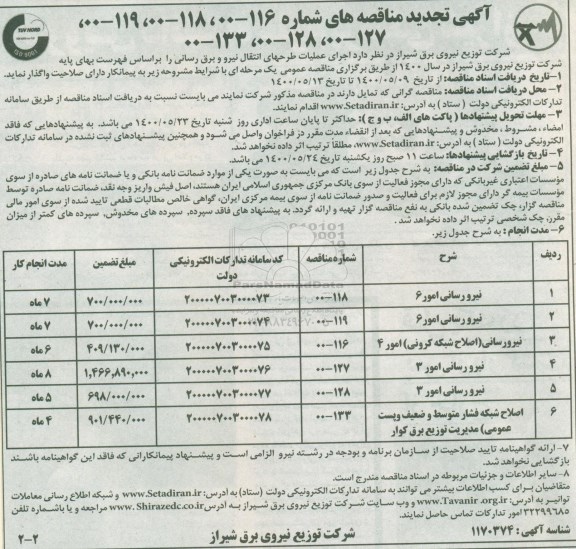 آگهی تجدید مناقصه های شماره ۱۱۶-۰۰، ۱۱۸-۰۰، ۱۱۹-۰۰،
۱۲۷-۰۰، ۱۲۸-۰۰، ۱۳۳-۰۰
شرکت توزیع نیروی برق شیراز در نظر دارد اجرای عملیات طرحهای انتقال نیرو و برق رسانی را براساس فهرست بهای پایه
شرکت توزیع نیروی برق شیراز در سال ۱۴۰۰ از طریق برگزاری مناقصه عمومی یک مرحله ای با شرایط مشروحه زیر به پیمانکار دارای صلاحیت واگذار نماید.
۱-تاریخ دریافت اسناد مناقصه: از تاریخ ۱۴۰۰/۰۵/۰۹ تا تاریخ ۱۴۰۰/۰۵/۱۳
۲- محل دریافت اسناد مناقصه: مناقصه گرانی که تمایل دارند در مناقصه مذکور شرکت نمایند می بایست نسبت به دریافت اسناد مناقصه از طریق سامانه
تدارکات الکترونیکی دولت ( ستاد ) به آدرس: www.Setadiran.ir اقدام نمایند.
۳- مهلت تحویل پیشنهادها ( پاکت های الف، ب و ج ): حداکثر تا پایان ساعت اداری روز شنبه تاریخ ۱۴۰۰/۰۵/۲۳ می باشد. به پیشنهادهایی که فاقد
امضاء ، مشروط ، مخدوش و پیشنهادهایی که بعد از انقضاء مدت مقرر در فراخوان واصل می شود و همچنین پیشنهادهای ثبت نشده در سامانه تدارکات
الکترونیکی دولت ( ستاد ) به آدرس: www.Setadiran.ir، مطلقا ترتیب اثر داده نخواهد شد.
۴- تاریخ بازگشایی پیشنهادها: ساعت ۱۱ صبح روز یکشنبه تاریخ ۱۴۰۰/۰۵/۲۴ می باشد.
۵- مبلغ تضمین شرکت در مناقصه: به شرح جدول زیر است که می بایست به صورت یکی از موارد ضمانت نامه بانکی و یا ضمانت نامه های صادره از سوی
مؤسسات اعتباری غیربانکی که دارای مجوز فعالیت از سوی بانک مرکزی جمهوری اسلامی ایران هستند، اصل فیش واریز وجه نقد، ضمانت نامه صادره توسط
مؤسسات بیمه گر دارای مجوز لازم برای فعالیت و صدور ضمانت نامه از سوی بیمه مرکزی ایران، گواهی خالص مطالبات قطعی تایید شده از سوی امور مالی
مناقصه گزار، چک تضمین شده بانکی به نفع مناقصه گزار تهیه و ارائه گردد. به پیشنهاد های فاقد سپرده، سپرده های مخدوش، سپرده های کمتر از میزان
مقرر، چک شخصی ترتیب اثر داده نخواهد شد .
۶- مدت انجام : به شرح جدول زیر.
ردیف شرح شماره مناقصه کد سامانه تدارکات الکترونیکی دولت مبلغ تضمین مدت انجام کار
۱ نیرو رسانی امور ۶ ۱۱۸-۰۰ ۲۰۰۰۰۰۷۰۰۳۰۰۰۰۷۳ ۷۰۰/۰۰۰/۰۰۰ ۷ ماه
۲ نیرو رسانی امور ۶ ۱۱۹-۰۰ ۲۰۰۰۰۰۷۰۰۳۰۰۰۰۷۴ ۷۰۰/۰۰۰/۰۰۰ ۷ ماه
۳ نیرورسانی(اصلاح شبکه کرونی) امور ۴ ۱۱۶-۰۰ ۲۰۰۰۰۰۷۰۰۳۰۰۰۰۷۵ ۴۰۹/۱۳۰/۰۰۰ ۶ ماه
۴ نیرو رسانی امور ۳ ۱۲۷-۰۰ ۲۰۰۰۰۰۷۰۰۳۰۰۰۰۷۶ ۱,۴۶۶,۸۹۰,۰۰۰ ۸ ماه
۵ نیرو رسانی امور ۳ ۱۲۸-۰۰ ۲۰۰۰۰۰۷۰۰۳۰۰۰۰۷۷ ۶۹۸/۰۰۰/۰۰۰ ۵ ماه
۶ اصلاح شبکه فشار متوسط و ضعیف وپست عمومی) مدیریت توزیع برق کوار ۱۳۳-۰۰ ۲۰۰۰۰۰۷۰۰۳۰۰۰۰۷۸ ۹۰۱/۴۴۰/۰۰۰ ۴ ماه
۷- ارائه گواهینامه تایید صلاحیت از سازمان برنامه و بودجه در رشته نیرو الزامی است و پیشنهاد پیمانکارانی که فاقد این گواهینامه باشند
بازگشایی نخواهد شد.
۸- سایر اطلاعات و جزئیات مربوطه در اسناد مناقصه مندرج است.
متقاضیان برای کسب اطلاعات بیشتر می توانند به سامانه تدارکات الکترونیکی دولت (ستاد) به آدرس: www.Setadiran.ir و شبکه اطلاع رسانی معاملات
توانیر به آدرس: www.Tavanir .org.ir و وب سایت شرکت توزیع نیروی برق شیراز به آدرس www.Shirazedc.co.ir مراجعه و یا باشماره تلفن
۳۲۲۹۹۶۸۵ امور تدارکات تماس حاصل نمایند.
شناسه آگهی : ۱۱۷۰۳۷۴ شرکت توزیع نیروی برق شیراز ۲-۲